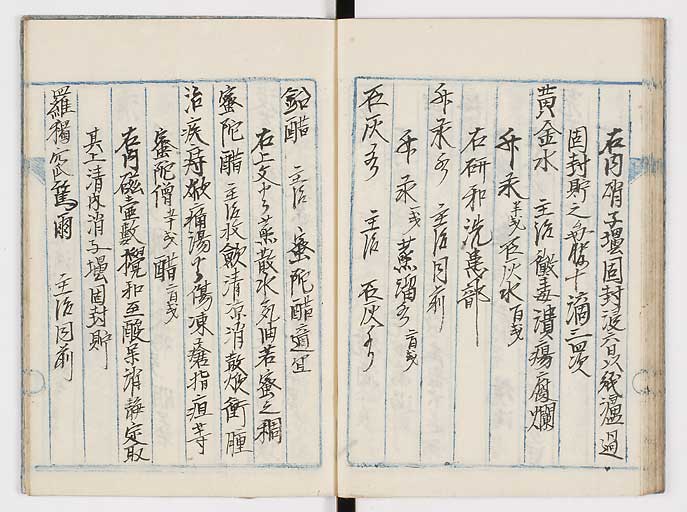 右内硝子壜固封浸六日以紙濾過
固封貯之毎服十滴三四次
黄金水 主治黴毒潰瘍腐爛
升汞 半戔 石灰水 百戔
右研和洗患部
升汞水 主治同前
升汞 一戔 蒸溜水 二百戔
石灰水 主治 石灰水
鉛醋 主治 蜜陀醋 適宜
右上文火蒸散水気由若蜜之稠
蜜陀醋 主治收歛清凉消散焮衝腫
治疾痔焮痛湯火傷凍瘡指疽等
蜜陀僧 半戔 醋 二百戔
右内磁壷数攪和至酸味消静定取
其上清内消子壜固封貯
主治同前